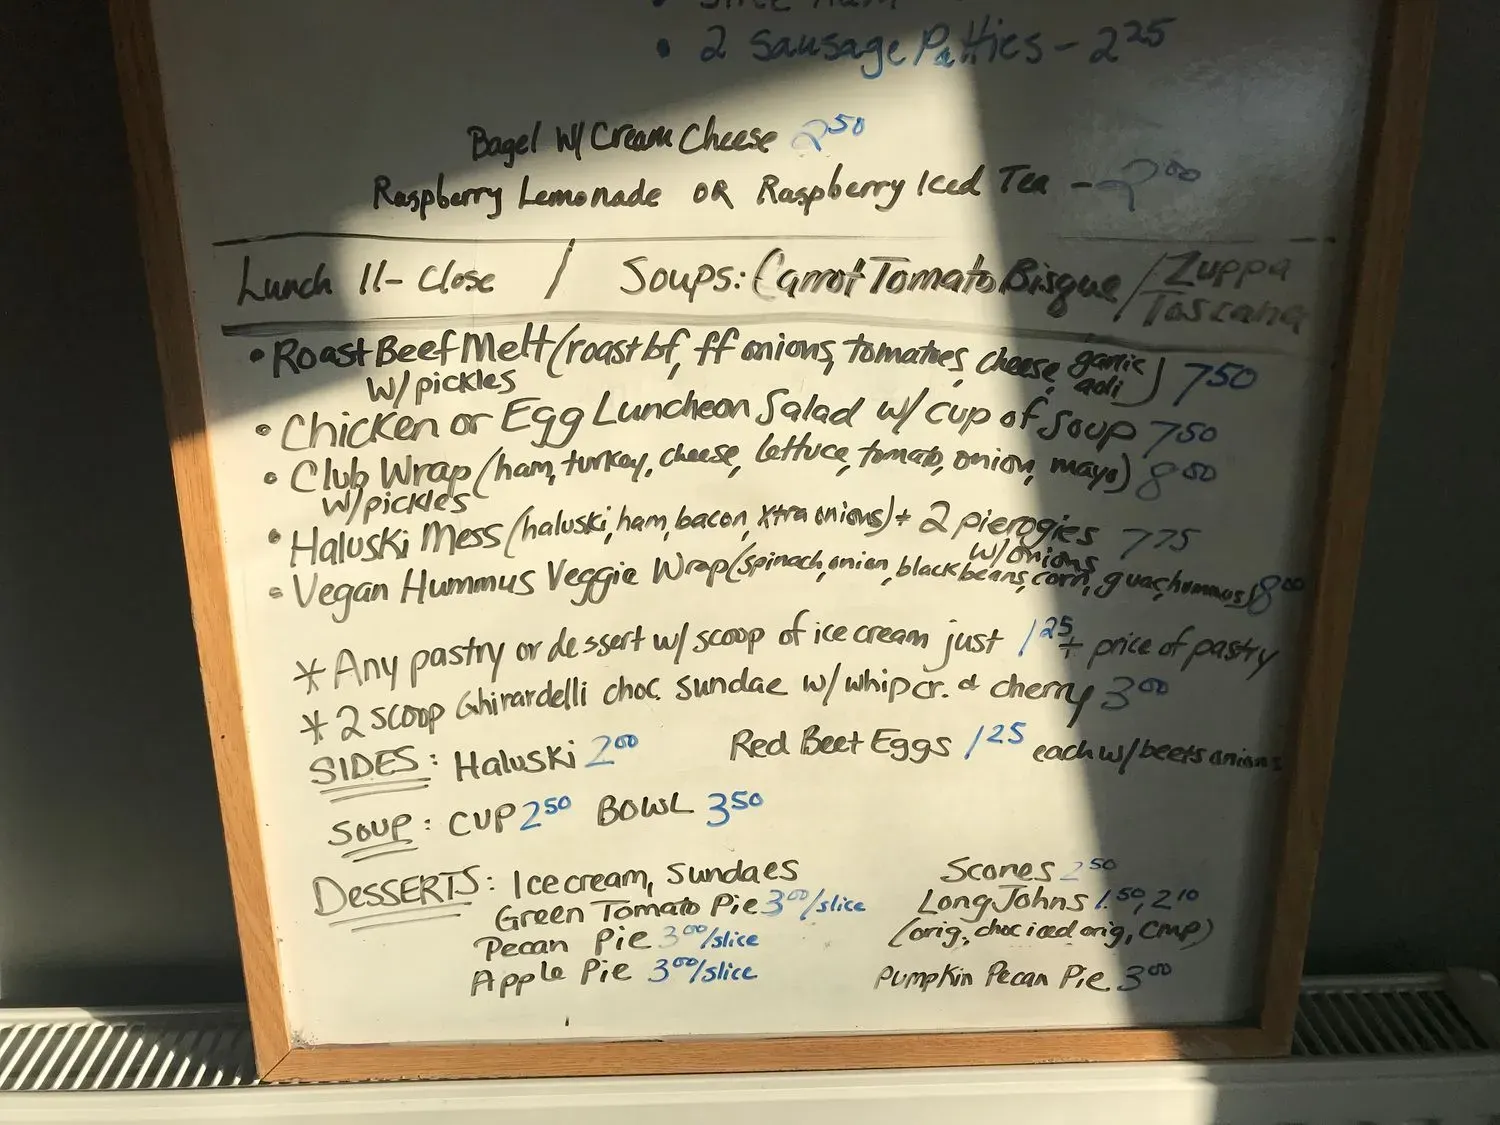 • 2 Sausage Patties - 2 25
Bagel w/ Cream Cheese 2 50
Raspberry Lemonade OR Raspberry Iced Tea - 2 00
Lunch 11- Close / Soups: Carrot Tomato Bisque / Zuppa Toscana
• Roast Beef Melt (roast bf, ff onions, tomatoes, cheese, garlic aoli) 7 50
w/ pickles
• Chicken or Egg Luncheon Salad w/ cup of soup 7 50
• Club Wrap (ham, turkey, cheese, lettuce, tomato, onion, mayo) 8 00
w/ pickles
• Haluski Mess (haluski, ham, bacon, xtra onions) + 2 pierogies 7 75
w/ onions
• Vegan Hummus Veggie Wrap (spinach, onion, black beans, corn, guac, hummus) 8 00
* Any pastry or dessert w/ scoop of ice cream just 1 25 + price of pastry
* 2 scoop Ghirardelli choc. sundae w/ whip cr. & cherry 3 00
SIDES: Haluski 2 00 Red Beet Eggs 1 25 each w/ beets onions
SOUP: CUP 2 50 BOWL 3 50
DESSERTS: Ice cream, Sundaes
Green Tomato Pie 3 00/slice
Pecan Pie 3 00/slice
Apple Pie 3 00/slice
Scones 2 50
Long Johns 1.50, 2 10
(orig, choc iced orig, CMP)
Pumpkin Pecan Pie 3 00